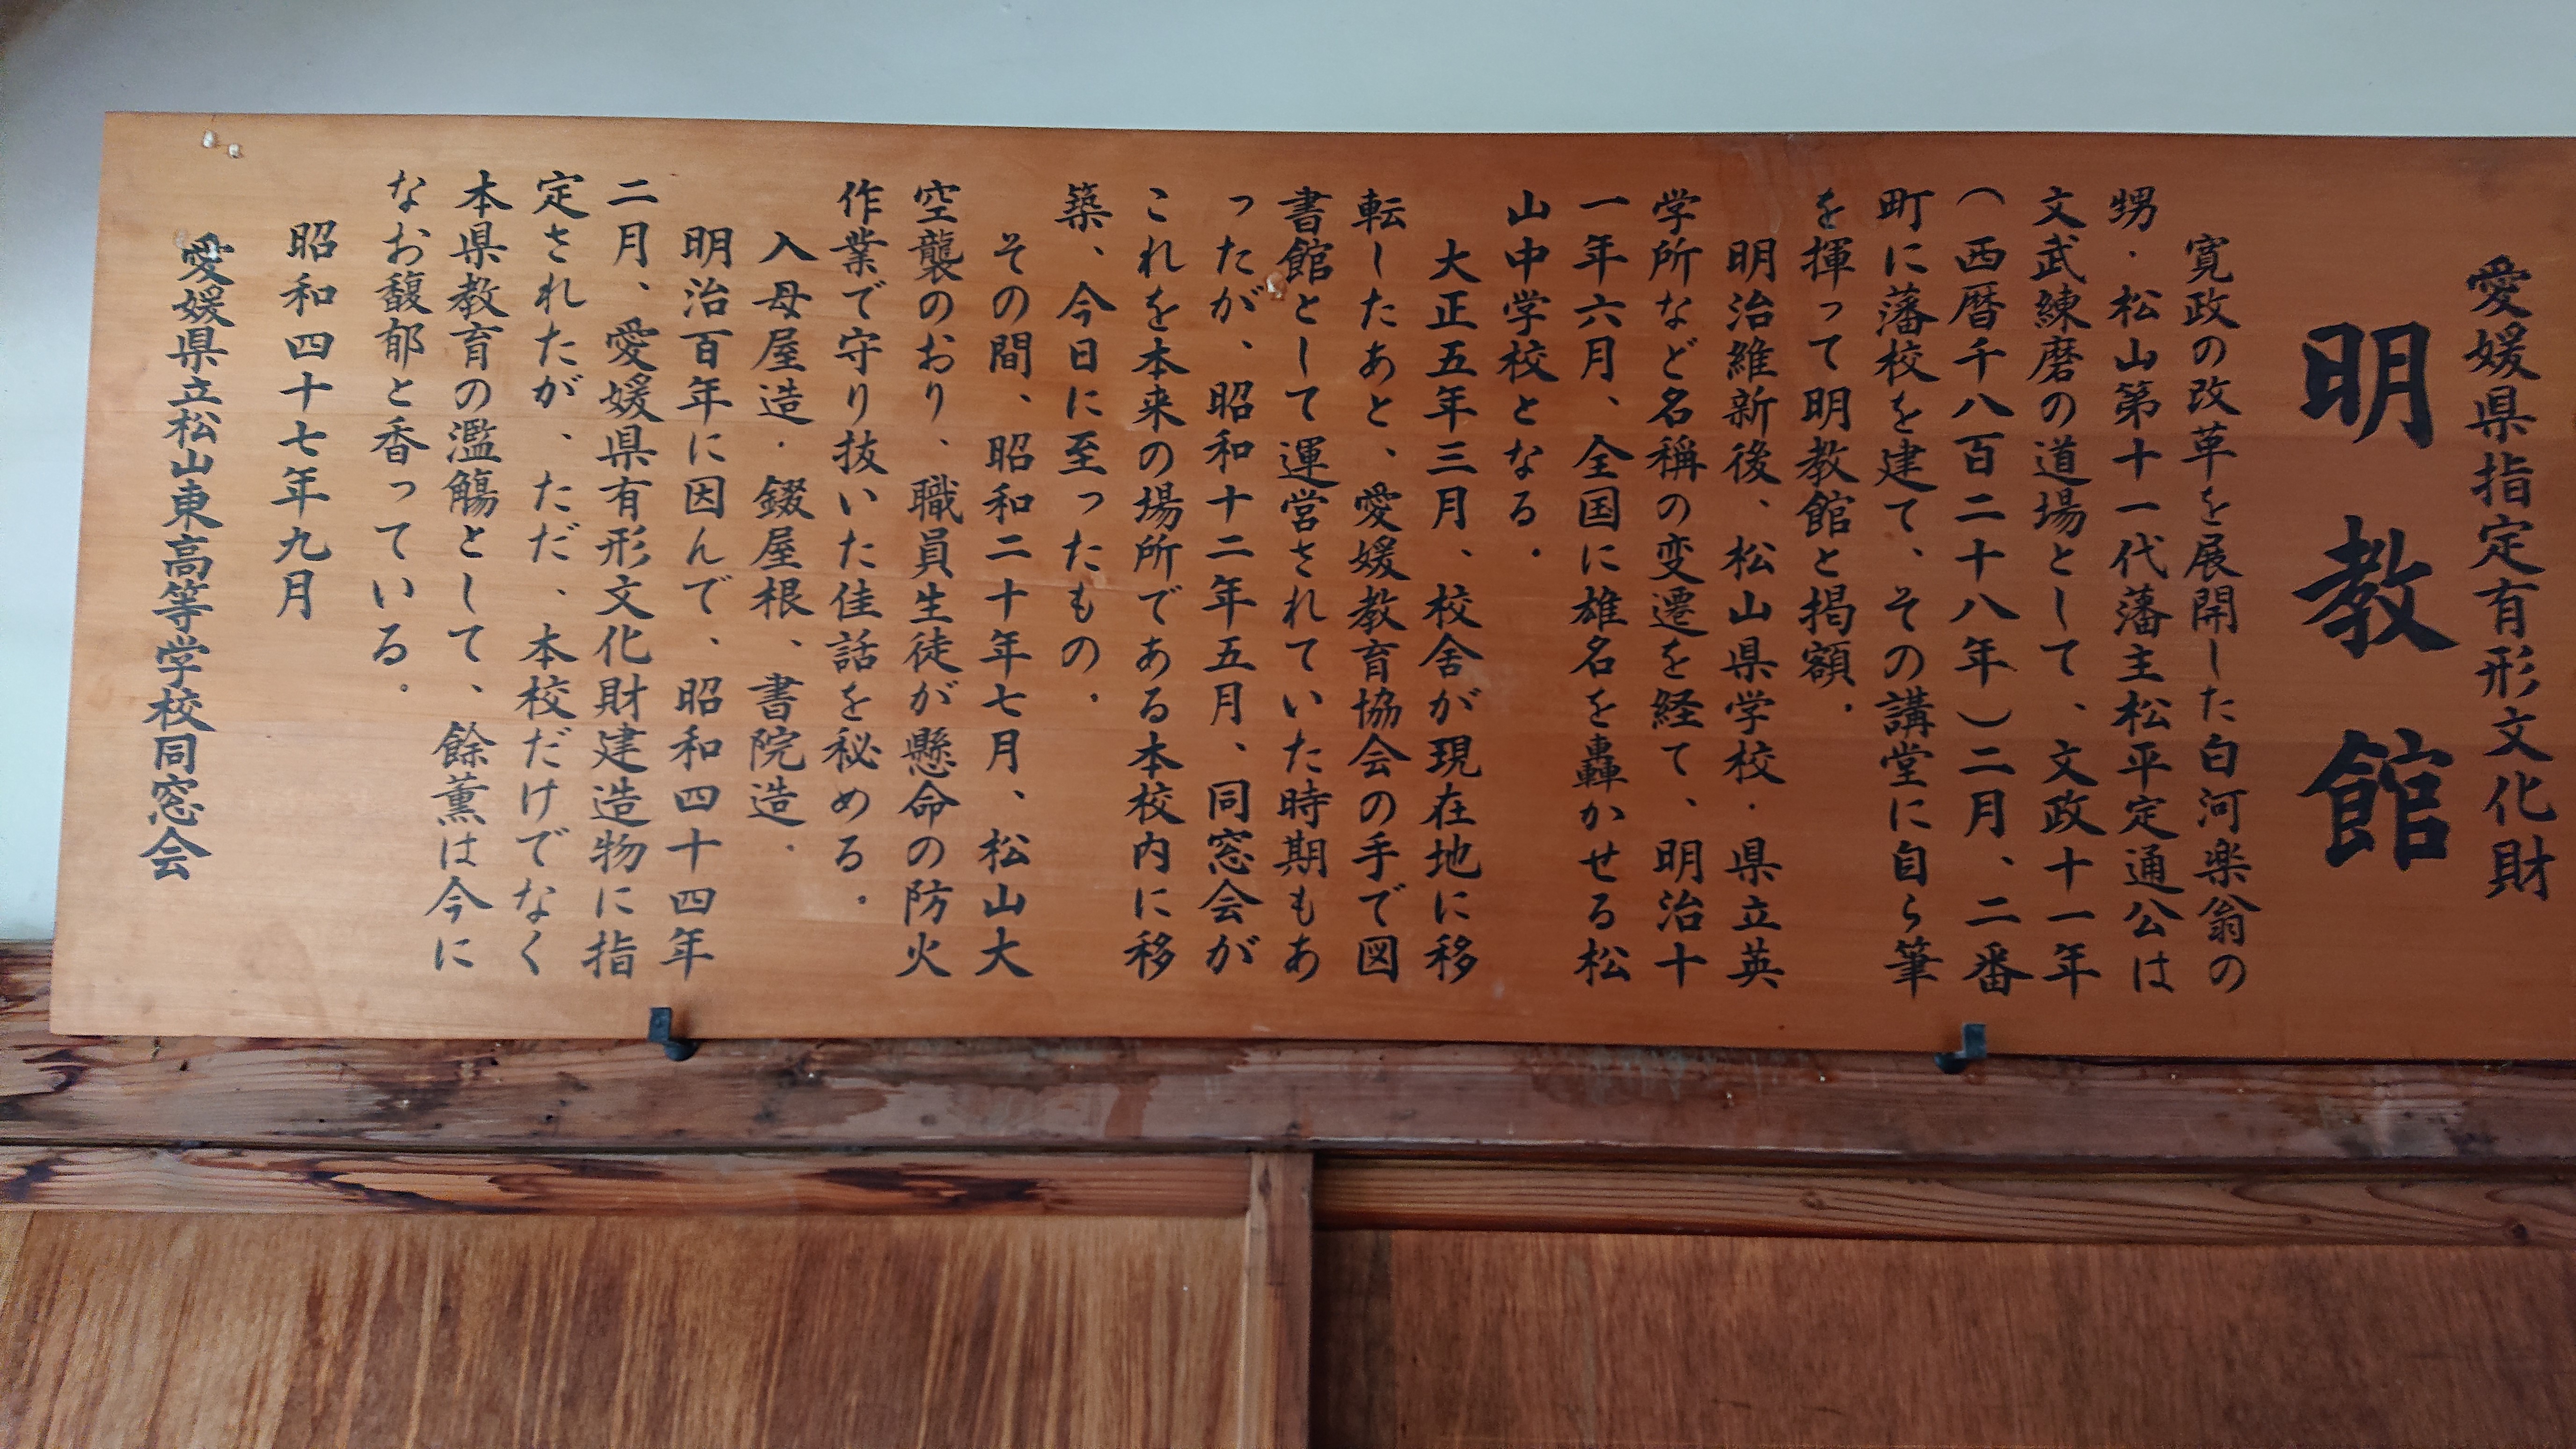 愛媛県指定有形文化財
明教館
寛政の改革を展開した白河楽翁の
甥・松山第十一代藩主松平定通公は
文武練磨の道場として、文政十一年
（西暦千八百二十八年）二月、二番
町に藩校を建て、その講堂に自ら筆
を揮って明教館と掲額。
明治維新後、松山県学校・県立英
学所など名稱の変遷を経て、明治十
一年六月、全国に雄名を轟かせる松
山中学校となる。
大正五年三月、校舎が現在地に移
転したあと、愛媛教育協会の手で図
書館として運営されていた時期もあ
ったが、昭和十二年五月、同窓会が
これを本来の場所である本校内に移
築、今日に至ったもの。
その間、昭和二十年七月、松山大
空襲のおり、職員生徒が懸命の防火
作業で守り抜いた佳話を秘める。
入母屋造・錣屋根、書院造。
明治百年に因んで、昭和四十四年
二月、愛媛県有形文化財建造物に指
定されたが、ただ、本校だけでなく
本県教育の濫觴として、餘薫は今に
なお馥郁と香っている。
昭和四十七年九月
愛媛県立松山東高等学校同窓会